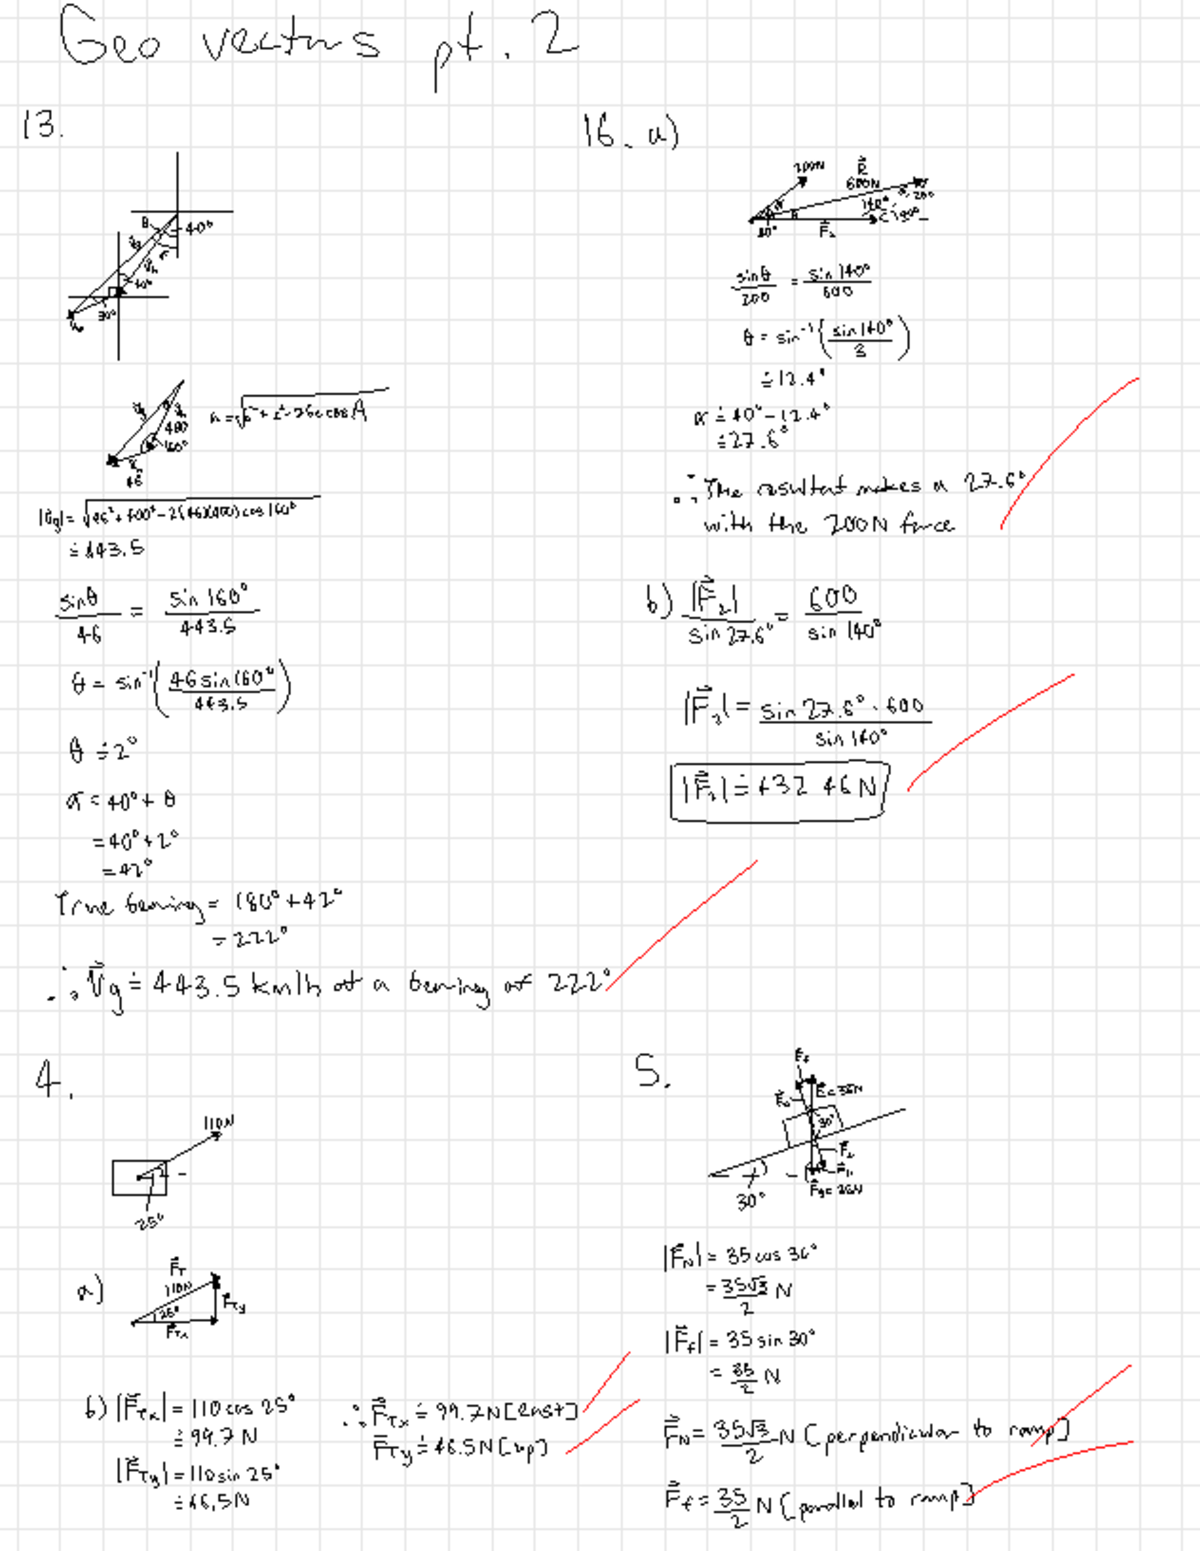 Geo vectors pt. 2
13.
θ
40°
30°
400
160°
46
a = √b² + c² - 2bc cos A
|V⃗g| = √46² + 400² - 2(46)(400) cos 160°
≐ 443.5
sinθ/46 = sin 160°/443.5
θ = sin⁻¹(46 sin 160°/443.5)
θ ≐ 2°
α = 40° + θ
= 40° + 2°
= 42°
True bearing = 180° + 42°
= 222°
∴ V⃗g ≐ 443.5 km/h at a bearing of 222°
16. a)
200N
R⃗
600N
140°
40°
F⃗₂
sinθ/200 = sin 140°/600
θ = sin⁻¹(sin 140°/3)
≐ 12.4°
α ≐ 40° - 12.4°
≐ 27.6°
∴ The resultant makes a 27.6°
with the 200N force
b) |F⃗₂|/sin 27.6° = 600/sin 140°
|F⃗₂| = sin 27.6° · 600/sin 140°
|F⃗₂| ≐ 432 46 N
4.
110N
25°
a)
F⃗T
110N
25°
F⃗Ty
F⃗Tx
b) |F⃗Tx| = 110 cos 25°
≐ 99.7 N
|F⃗Ty| = 110 sin 25°
≐ 46.5N
∴ F⃗Tx ≐ 99.7N [East]
F⃗Ty ≐ 46.5N [up]
5.
30°
30°
|F⃗N| = 35 cos 30°
= 35√3/2 N
|F⃗f| = 35 sin 30°
= 35/2 N
F⃗N = 35√3/2 N [perpendicular to ramp]
F⃗f = 35/2 N [parallel to ramp]